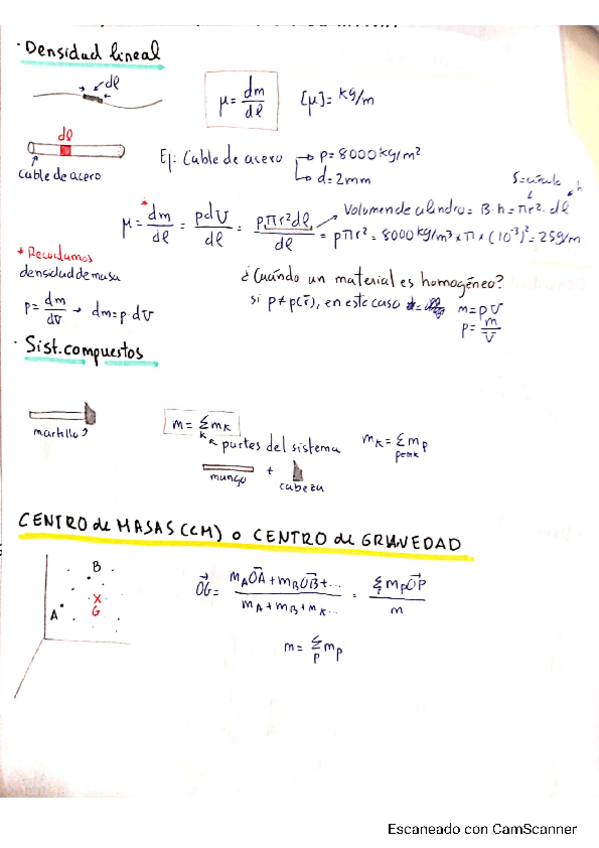 · Densidad lineal
dl
μ = dm/dl [μ] = kg/m
dl
Cable de acero
Ej: Cable de acero → ρ = 8000 kg/m²
→ d = 2mm
S=círculo h
Volumen de cilindro = B·h = πr²·dl
μ = dm/dl = ρdV/dl = ρπr²dl/dl = ρπr² = 8000 kg/m³ × π × (10⁻³)² = 25 g/m
* Recordamos
densidad de masa
ρ = dm/dV → dm = ρ·dV
¿Cuándo un material es homogéneo?
si ρ ≠ ρ(r̄), en este caso m = ρV
ρ = m/V
· Sist. compuestos
martillo
m = Σ mₖ
k
partes del sistema
mₖ = Σ mₚ
p∈mk
mango + cabeza
CENTRO de MASAS (CM) o CENTRO de GRAVEDAD
B
A
G
OG = mₐOA + m_BOB + ... / mₐ + m_B + mₖ... = Σ mₚOP / m
m = Σ mₚ
p
Escaneado con CamScanner